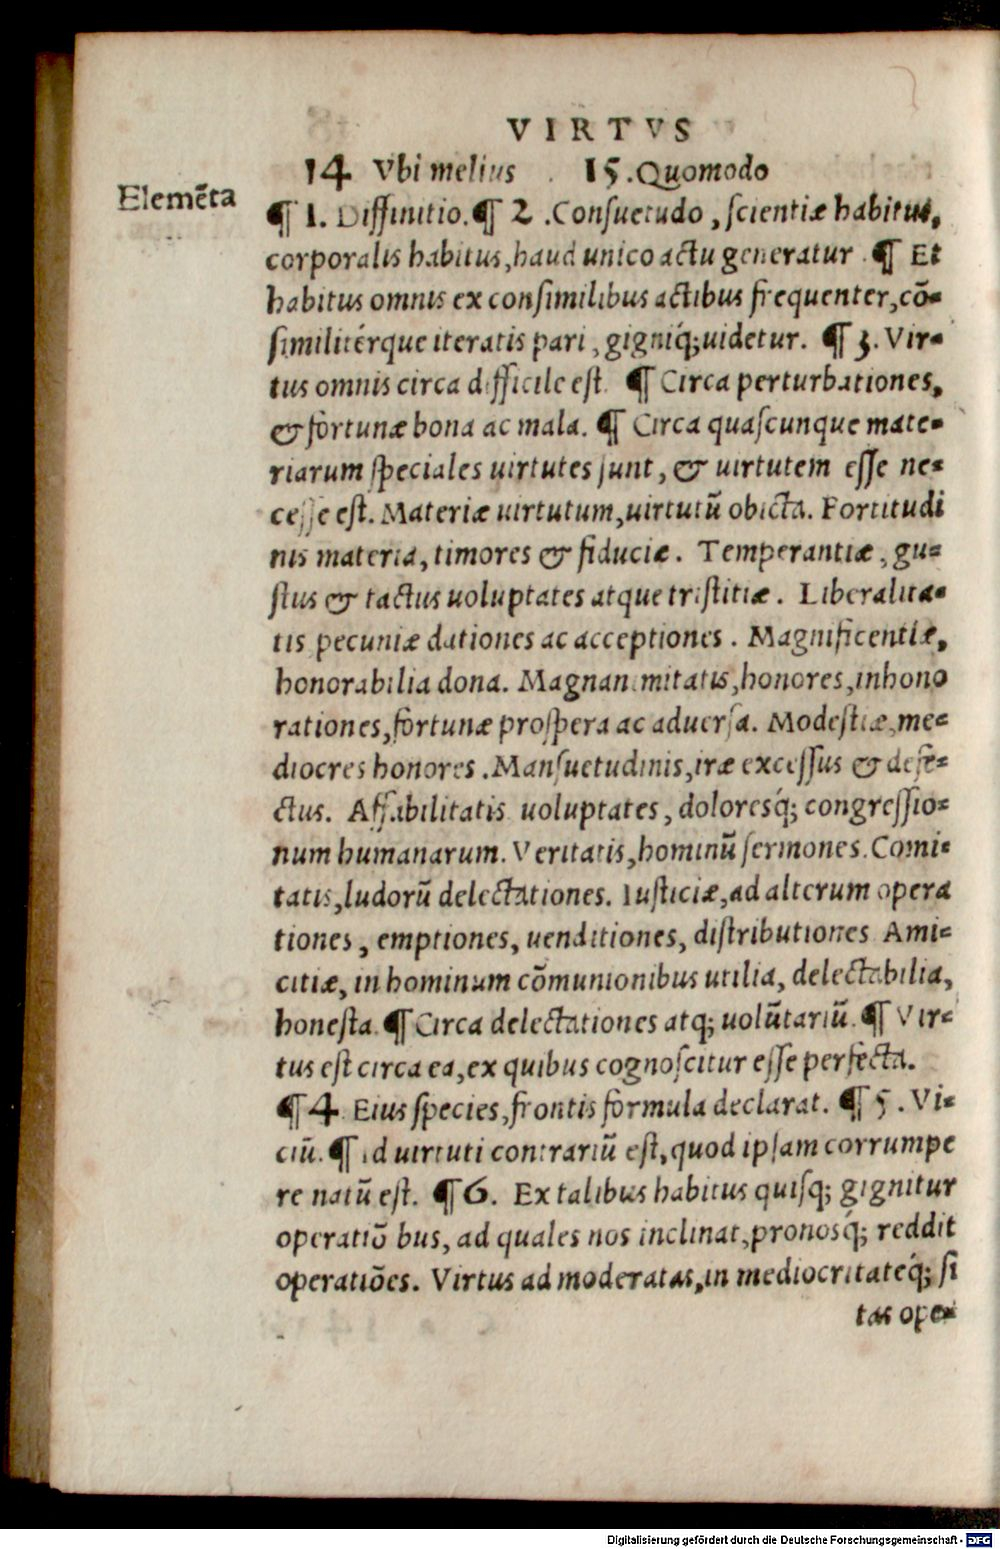 VIRTVS
14 Vbi melius . 15.Quomodo
Elemēta
¶ 1. Diffinitio.¶ 2 .Consuetudo, scientiæ habitus,
corporalis habitus, haud unico actu generatur . ¶ Et
habitus omnis ex consimilibus actibus frequenter, cō-
similitérque iteratis pari, gigniq́;uidetur. ¶ 3. Vir-
tus omnis circa difficile est. ¶ Circa perturbationes,
& fortunæ bona ac mala. ¶ Circa quascunque mate-
riarum speciales uirtutes sunt, & uirtutem esse ne-
cesse est. Materiæ uirtutum, uirtutū obiecta. Fortitudi
nis materia, timores & fiduciæ. Temperantiæ, gu-
stus & tactus uoluptates atque tristitiæ. Liberalita-
tis pecuniæ dationes ac acceptiones. Magnificentiæ,
honorabilia dona. Magnanimitatis, honores, inhono
rationes, fortunæ prospera ac aduersa. Modestiæ, me-
diocres honores. Mansuetudinis, iræ excessus & defe-
ctus. Affabilitatis uoluptates, doloresq́; congressio-
num humanarum. Veritatis, hominū sermones. Comi-
tatis, ludorū delectationes. Iusticiæ, ad alterum opera
tiones, emptiones, uenditiones, distributiones Ami-
citiæ, in hominum cōmunionibus utilia, delectabilia,
honesta. ¶ Circa delectationes atq; uolūtariū. ¶ Vir-
tus est circa ea, ex quibus cognoscitur esse perfecta.
¶ 4 Eius species, frontis formula declarat. ¶ 5. Vi-
ciū. ¶ Id uirtuti contrariū est, quod ipsam corrumpe
re natū est. ¶ 6. Ex talibus habitus quisq; gignitur
operatiō bus, ad quales nos inclinat, pronosq́; reddit
operatiōes. Virtus ad moderatas, in mediocritateq́; si
tas ope-
Digitalisierung gefördert durch die Deutsche Forschungsgemeinschaft - DFG